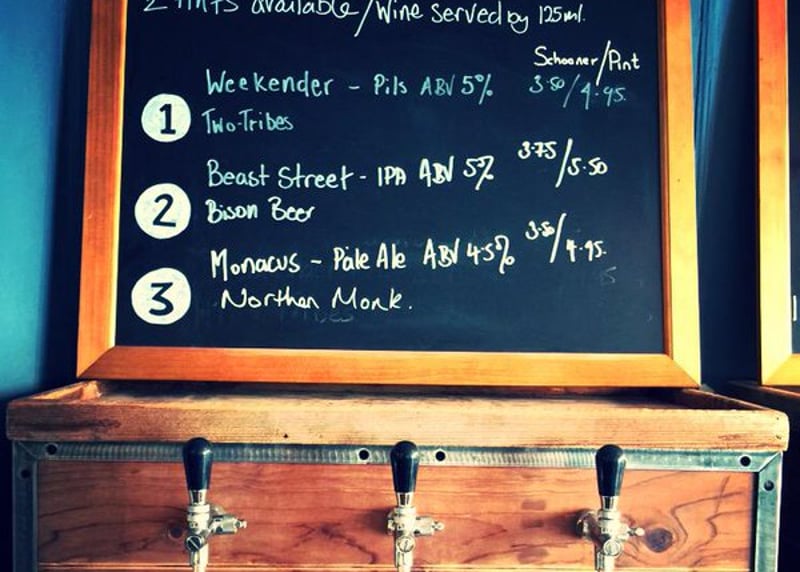 2 Pints available/Wine served by 125ml.
Schooner/Pint
1 Weekender - Pils ABV 5% 3.50/4.95.
Two-Tribes
Beast Street - IPA ABV 5% 3.75/5.50
2 Bison Beer
Monacus - Pale Ale ABV 4.5% 3.50/4.95.
3 Northen Monk.